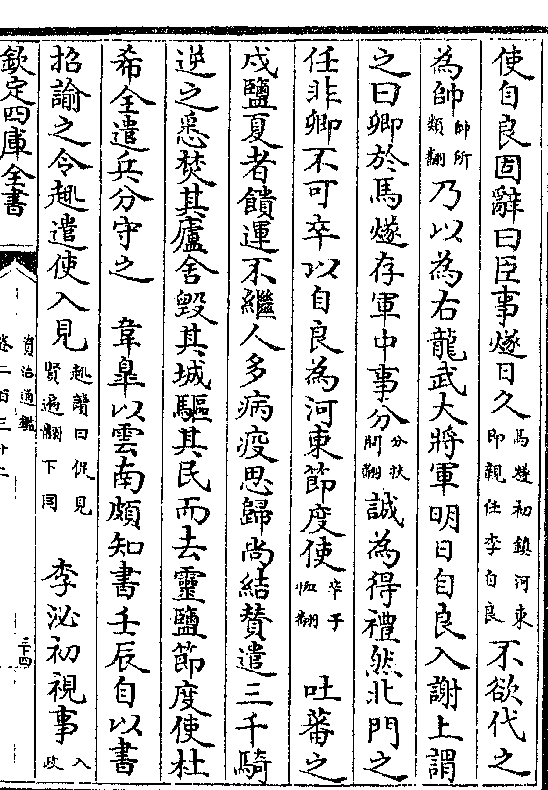 使自良固辭曰臣事燧日久馬燧初鎮河東即親任李自良不欲代之
為帥帥所類翻乃以為右龍武大將軍明日自良入謝上謂
之曰卿於馬燧存軍中事分分扶問翻誠為得禮然北門之
任非卿不可卒以自良為河東節度使卒子恤翻吐蕃之
戍鹽夏者饋運不繼人多病疫思歸尚結贊遣三千騎
逆之悉焚其廬舍毀其城驅其民而去靈鹽節度使杜
希全遣兵分守之 韋臯以雲南頗知書壬辰自以書
招諭之令趣遣使入見趣讀曰促見賢遍翻下同 李泌初視事入政
欽定四庫全書
資治通鑑
卷二百三十二
三十四